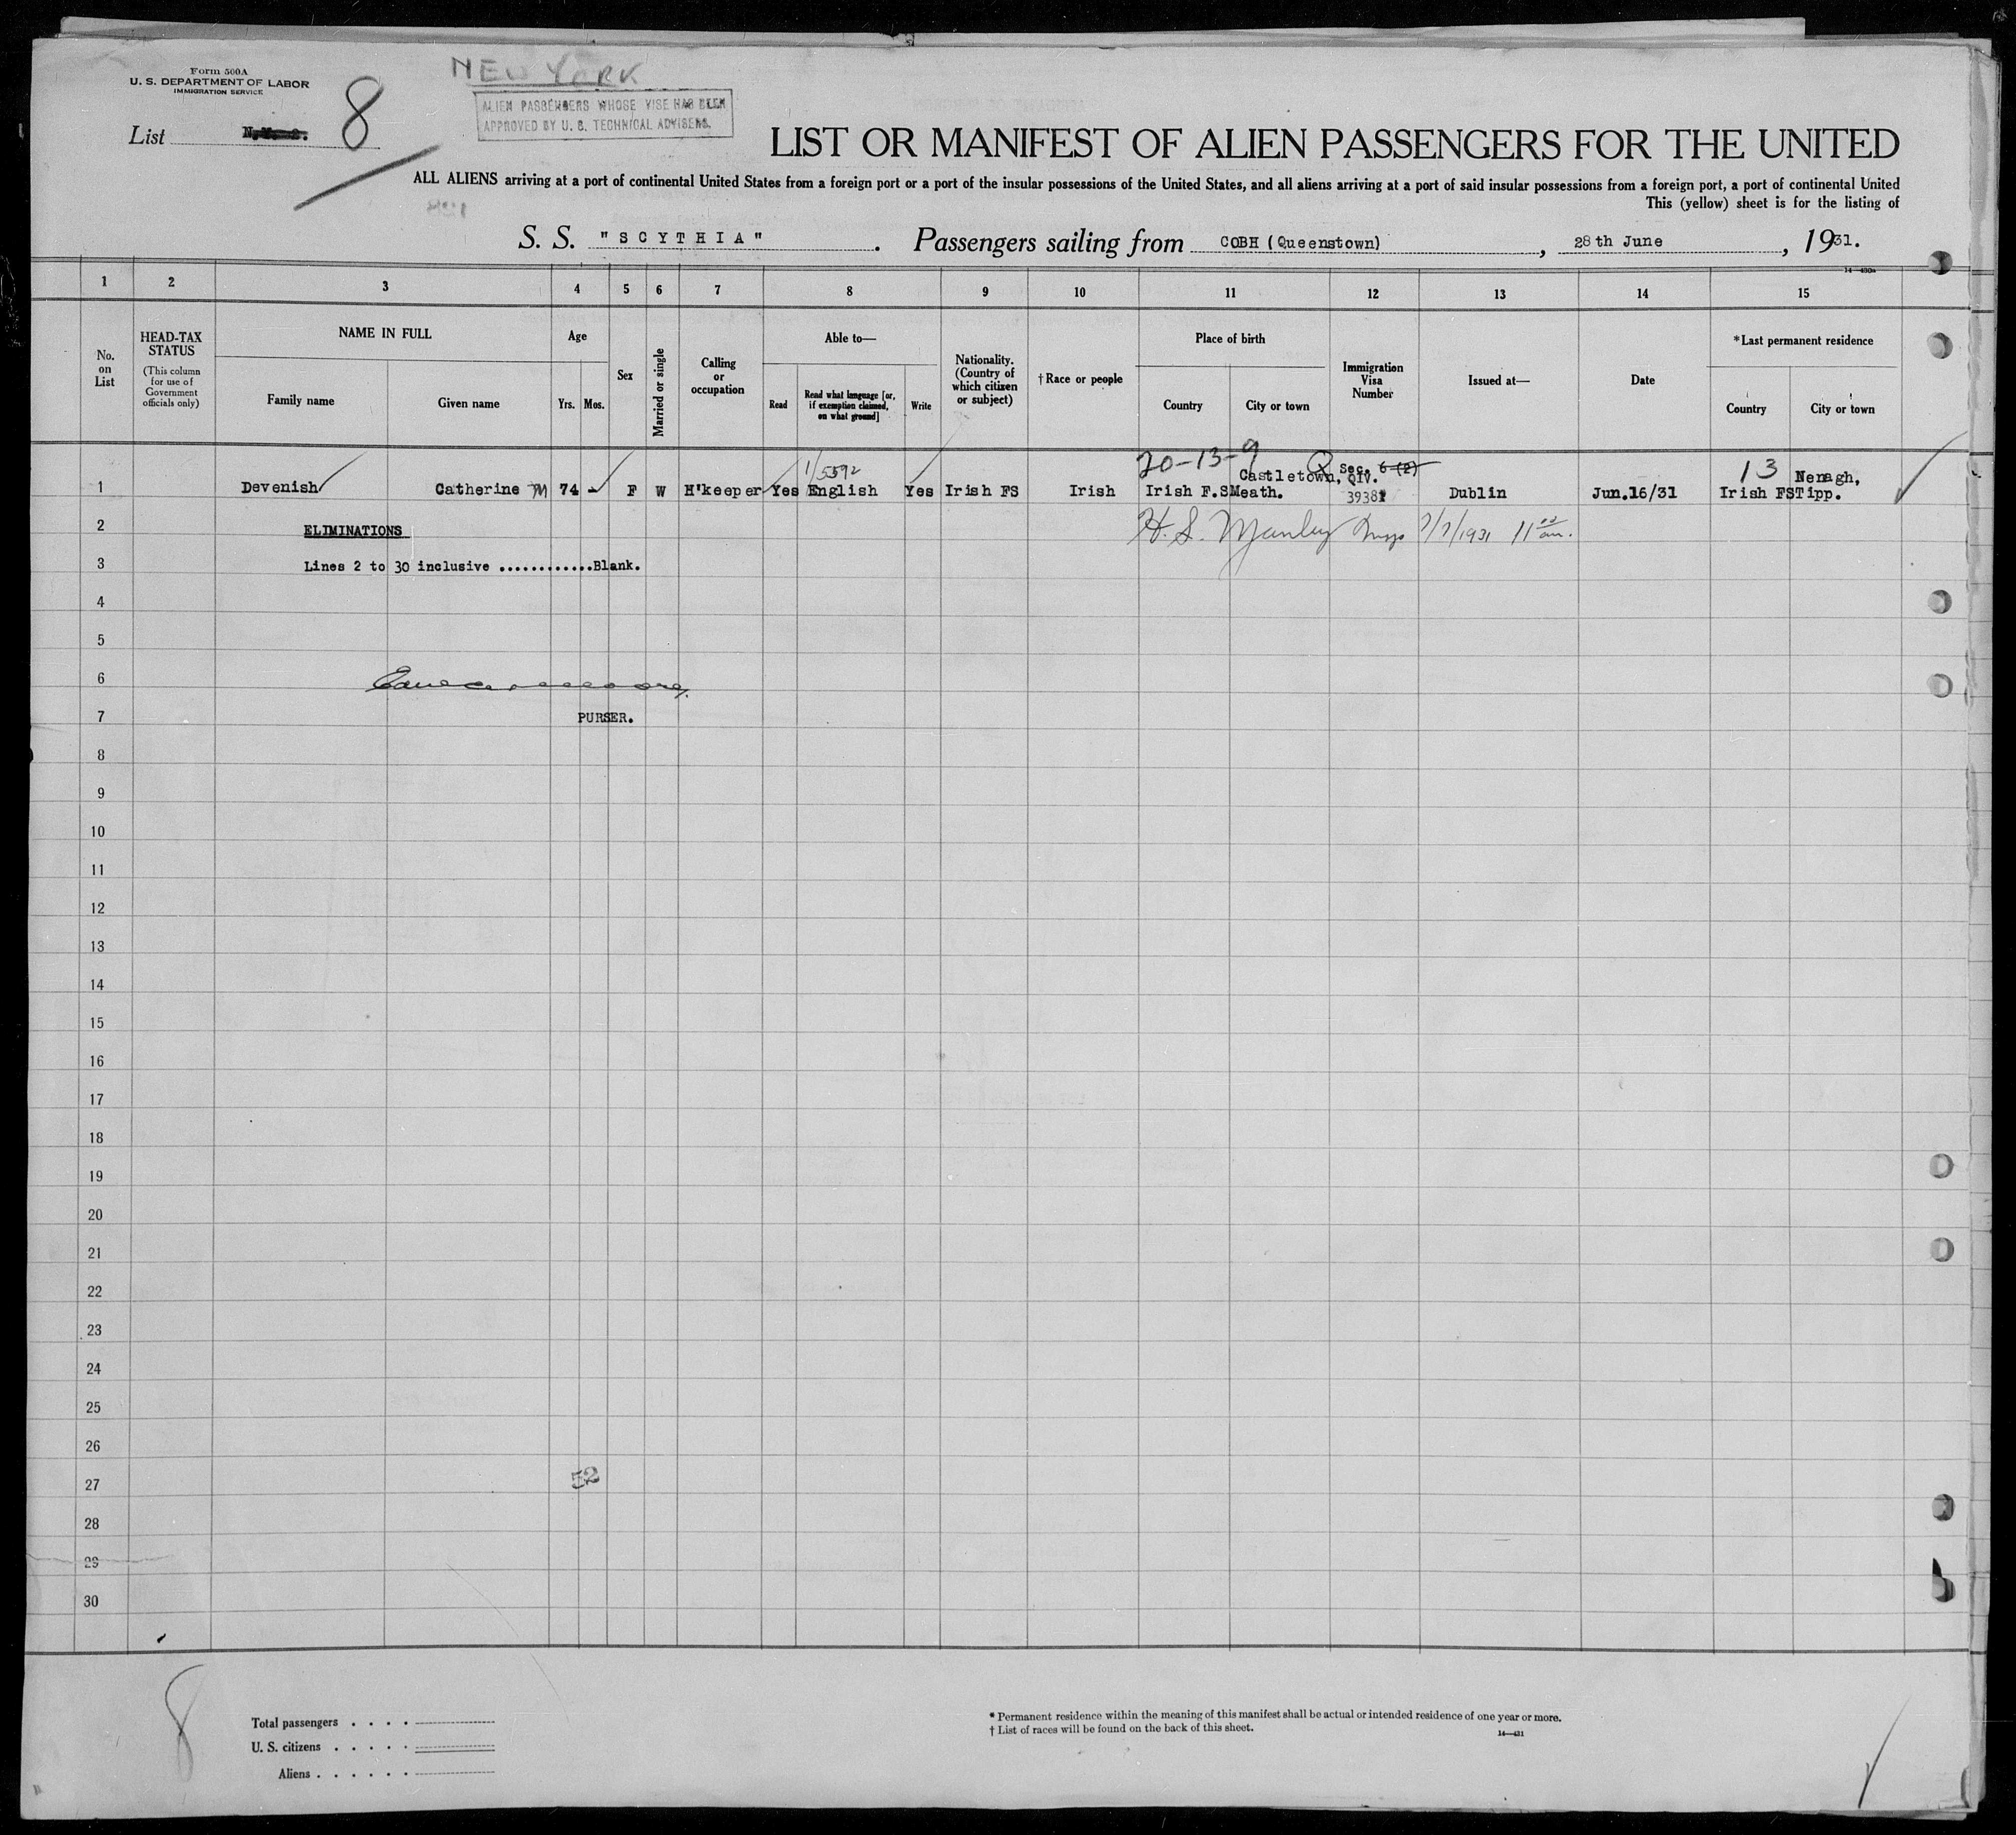 Form 500A
U. S. DEPARTMENT OF LABOR
IMMIGRATION SERVICE
NEW YORK
ALIEN PASSENGERS WHOSE VISE HAS BEEN
APPROVED BY U. S. TECHNICAL ADVISERS.
List 8
LIST OR MANIFEST OF ALIEN PASSENGERS FOR THE UNITED
ALL ALIENS arriving at a port of continental United States from a foreign port or a port of the insular possessions of the United States, and all aliens arriving at a port of said insular possessions from a foreign port, a port of continental United
This (yellow) sheet is for the listing of
S. S. "SCYTHIA". Passengers sailing from COBH (Queenstown), 28th June, 1931.
1 2 3 4 5 6 7 8 9 10 11 12 13 14 15
No. on List
HEAD-TAX STATUS
(This column for use of Government officials only)
NAME IN FULL
Family name Given name
Age
Yrs. Mos.
Sex
Married or single
Calling or occupation
Able to—
Read
Read what language [or, if exemption claimed, on what ground]
Write
Nationality. (Country of which citizen or subject)
†Race or people
Place of birth
Country City or town
Immigration Visa Number
Issued at—
Date
*Last permanent residence
Country City or town
1/5592 20-13-9 Q Sec. 6 (2) 13
Castletown, QIV. Nenagh,
1 Devenish Catherine M 74 - F W H'keeper Yes English Yes Irish FS Irish Irish F.S Meath. 39381 Dublin Jun.16/31 Irish FS Tipp.
2 ELIMINATIONS H. S. Manley 7/7/1931 11 00 am.
3 Lines 2 to 30 inclusive ............Blank.
4
5
6
7 PURSER.
8
9
10
11
12
13
14
15
16
17
18
19
20
21
22
23
24
25
26
27 52
28
29
30
8
Total passengers . . . .
U. S. citizens . . . . .
Aliens . . . . . .
* Permanent residence within the meaning of this manifest shall be actual or intended residence of one year or more.
† List of races will be found on the back of this sheet.
14—431